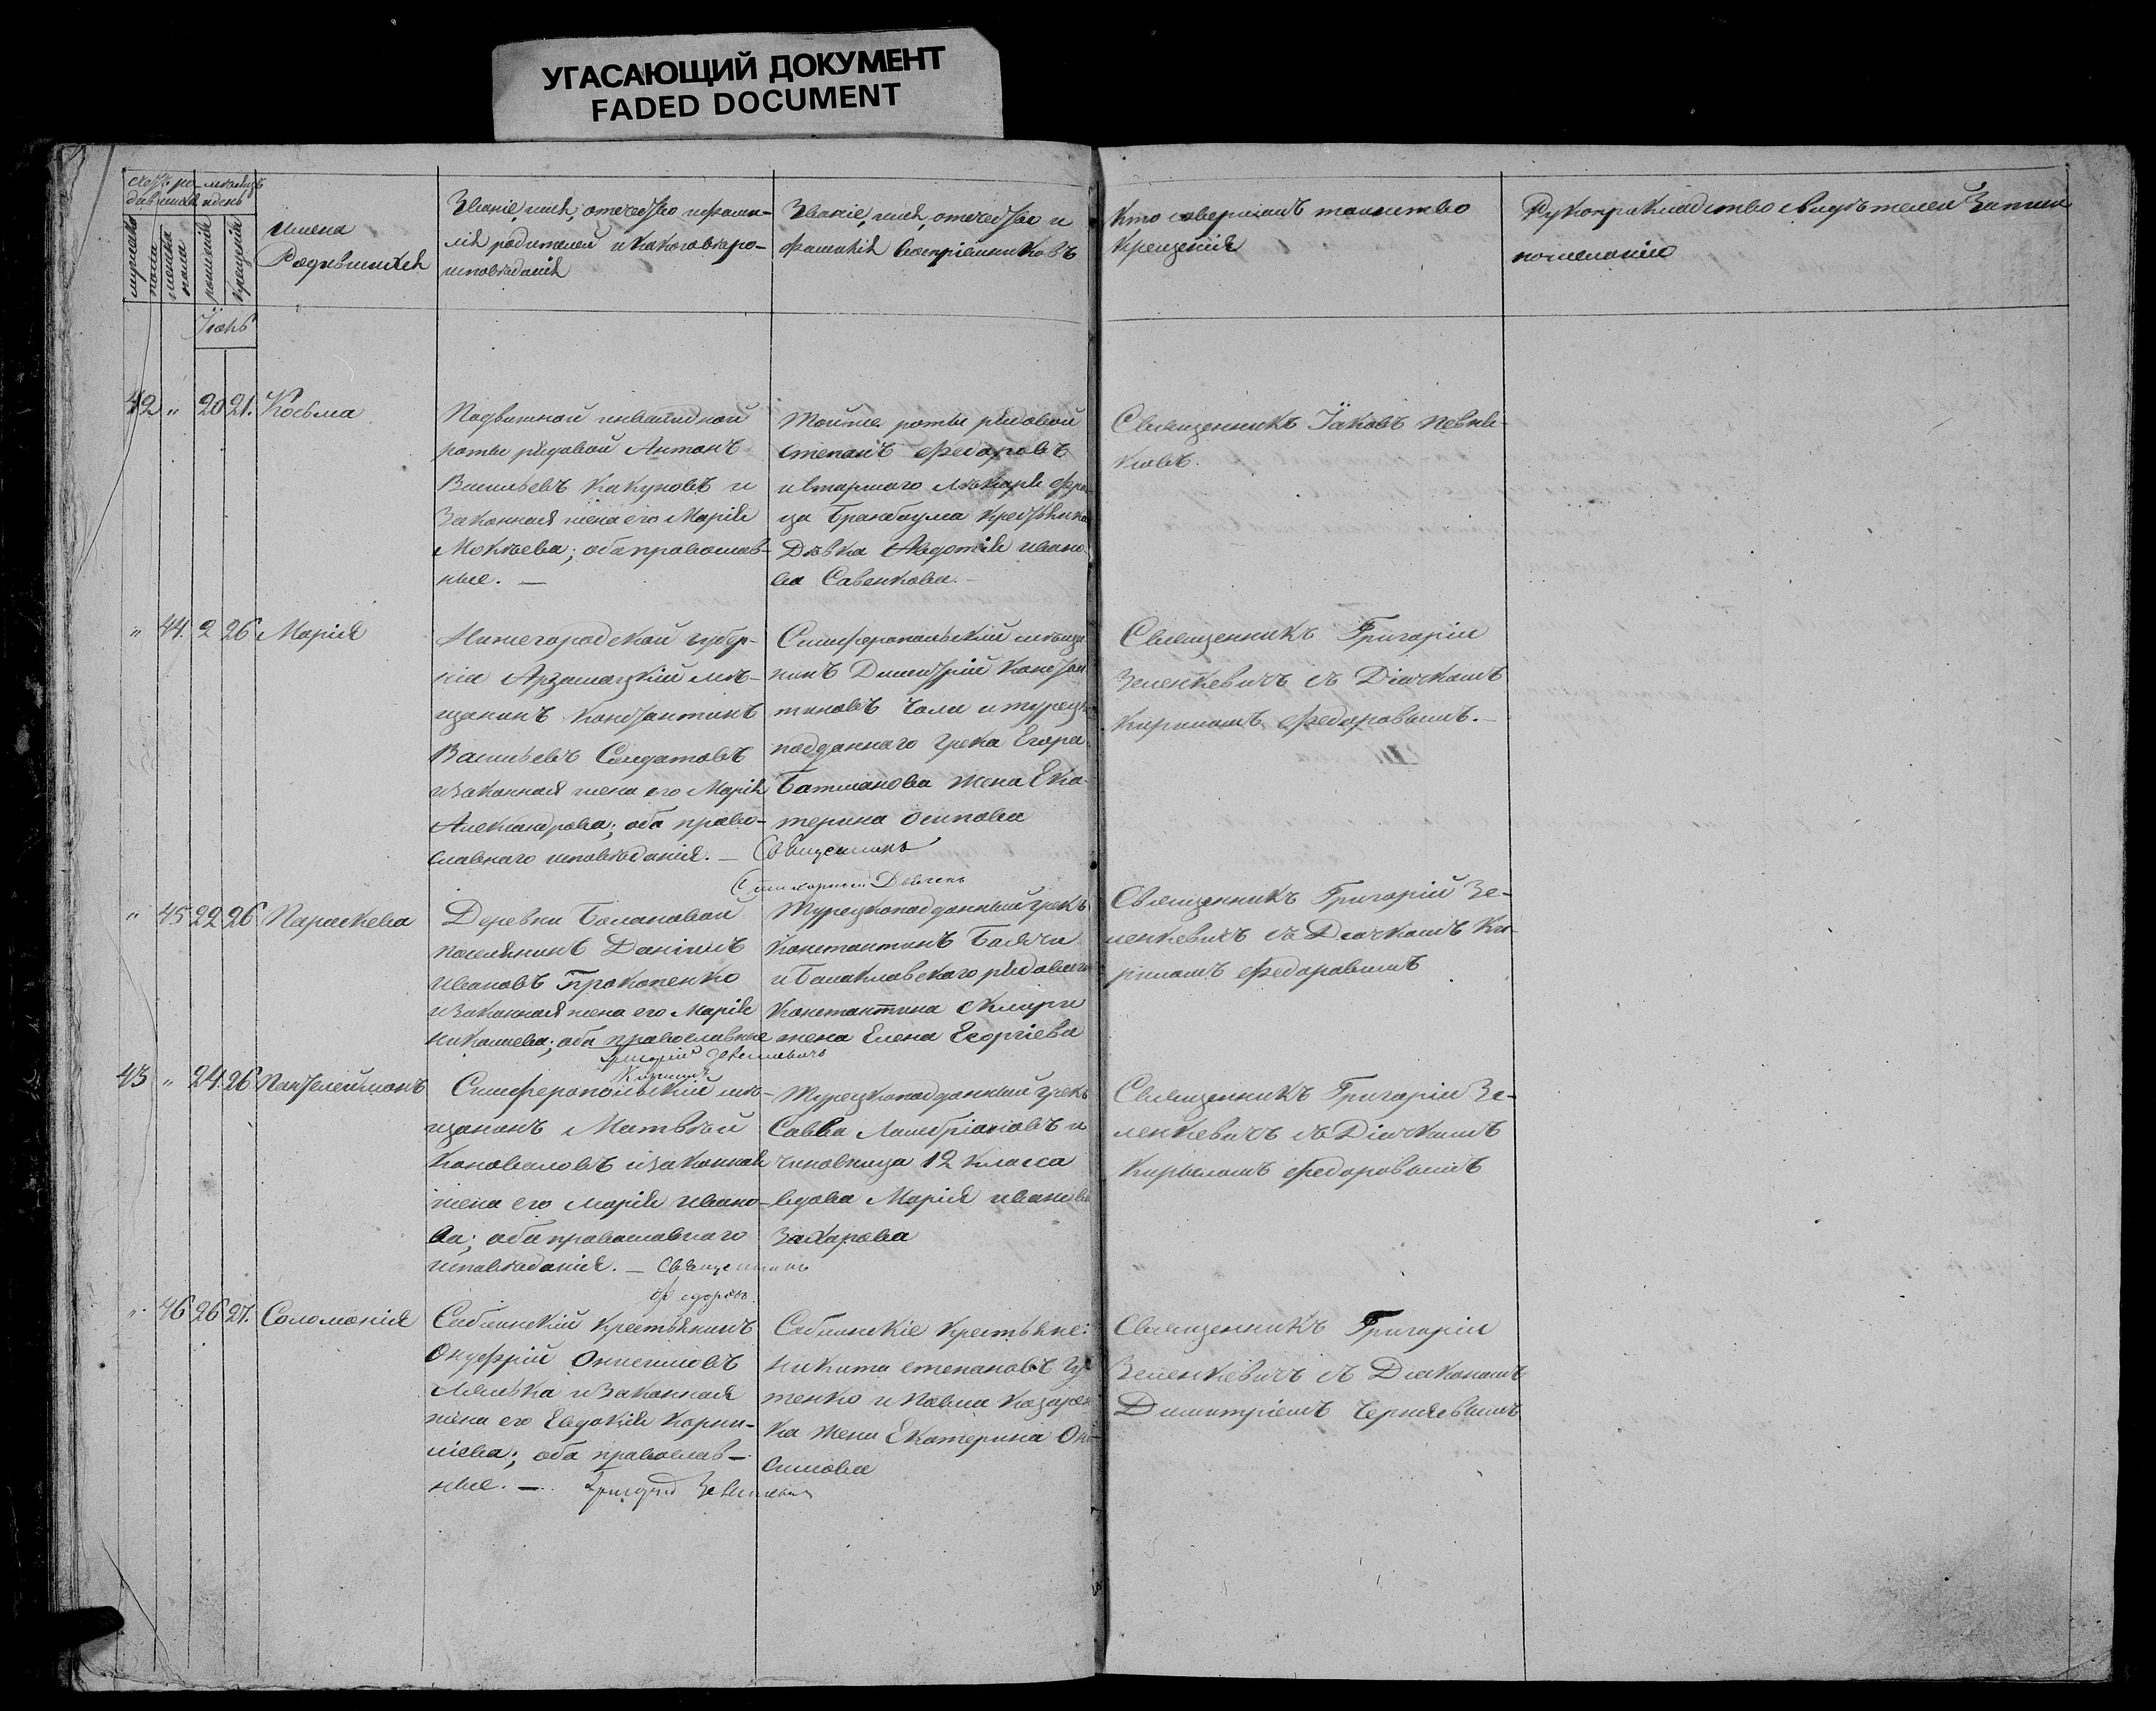 УГАСАЮЩИЙ ДОКУМЕНТ
FADED DOCUMENT
мужеска пола
женска пола
рожденія
крещенія
Имена
Родившихся
Званіе, имя, отечество и фами-
лія родителей и какого вѣро-
исповѣданія
Званіе, имя, отечество и
фамилія Воспріемниковъ
Кто совершалъ таинство
Крещенія
Рукоприкладство свидѣтелей Записи
по желанію
Іюнь
42 „ 20 21. Косьма
Подвижной инвалидной
роты рядовой Антонъ
Васильевъ Кикуновъ и
Законная жена его Марія
Мокѣева; оба православ-
ные. —
Тойже роты рядовой
Степанъ Федоровъ
и старшаго Лѣкаря
Дѣвка Авдотія Ивано
ва Савенкова. —
Священникъ Іаковъ
„ 44. 2 26 Марія
Нижегородской губер-
ніи Арзамазкій мѣ-
щанинъ Константинъ
Васильевъ Солдатовъ
и Законная жена его Марія
Александрова; оба право-
славнаго исповѣданія. —
Симферопольскій мѣща
нинъ Димитрій Констан
тиновъ Чоли и турецко
подданнаго грека Егора
Батманова жена Ека-
терина Осипова
Священникъ
Священникъ Григорій
Зеленкевичъ съ Діячкомъ
Кириломъ Федоровымъ. —
„ 45 22 26 Параскева
Деревни Балановой
поселянинъ Даніилъ
Ивановъ Прокопенко
и Законная жена его Марія
Николаева; оба православные
Турецкоподданный грекъ
Константинъ
и Балаклавскаго рядоваго
Константина
жена Елена Георгіева
Священникъ Григорій Зе-
ленкевичъ съ Діячкомъ Ки-
риломъ Федоровымъ
43 „ 24 26 Пантелеимонъ
Симферопольскій мѣ-
щанинъ Матвѣй
Коноваловъ и законная
жена его Марія Ивано-
ва; оба православнаго
исповѣданія. — Священникъ
Турецкоподданный грекъ
Савва Ламбріановъ и
чиновница 12 класса
вдова Марія Иванова
Захарова
Священникъ Григорій Зе-
ленкевичъ съ Діячкомъ
Кириломъ Федоровымъ
„ 46 26 27. Соломонія
Саблинскій крестьянинъ
Онуфрій Онисимовъ
и Законная
жена его Евдокія Корни-
ліева; оба православ-
ные. —
Саблинскіе крестьяне:
Никита Степановъ
тенко и Павла Козарен
ка жена Екатерина Они-
симова
Священникъ Григорій
Зеленкевичъ съ Діакономъ
Димитріемъ Чернявскимъ